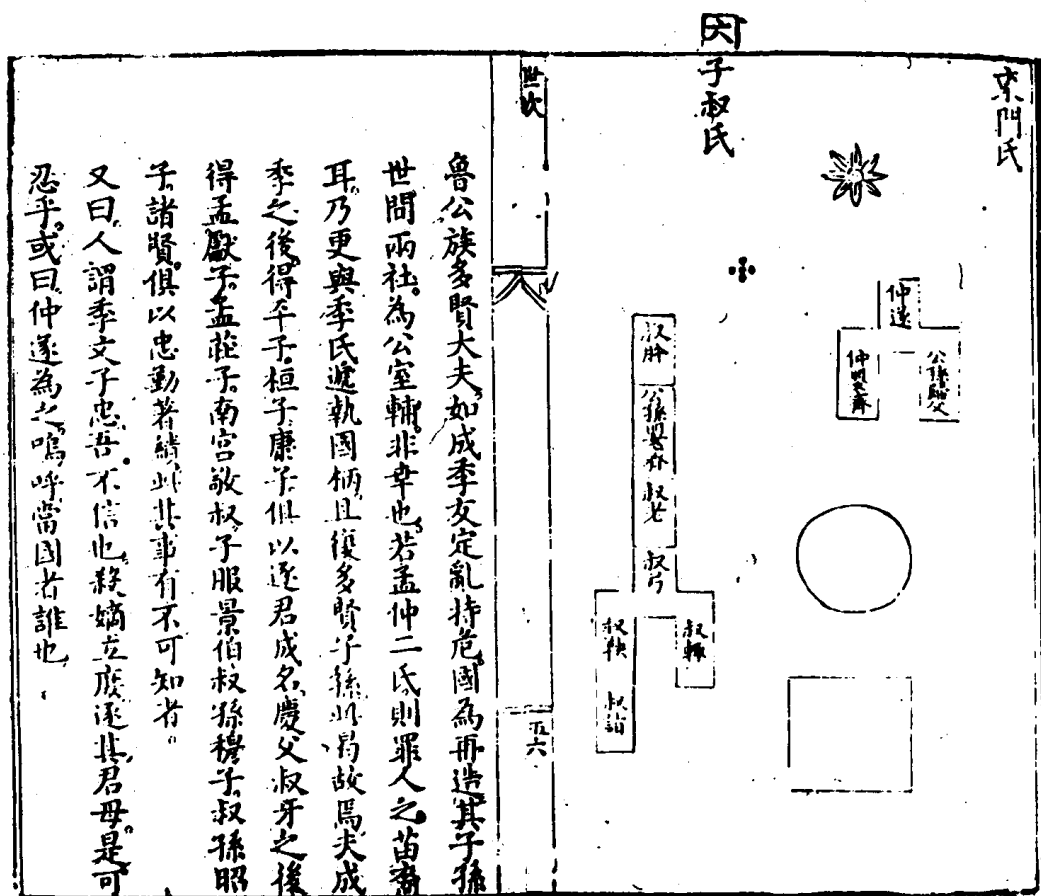 東門氏
仲遂
公孫歸父
仲嬰齊
子叔氏
叔肸
公孫嬰齊
叔老
叔弓
叔輒
叔鞅
叔詣
世次
五六
魯公族多賢大夫如成季友定亂持危國為再造其子孫
世間兩社為公室輔非幸也若孟仲二氏則罪人之苗裔
耳乃更與季氏遞執國柄且復多賢子孫此曷故焉夫成
季之後得平子桓子康子俱以逐君成名慶父叔牙之後
得孟獻子孟莊子南宮敬叔子服景伯叔孫穆子叔孫昭
子諸賢俱以忠勤著績此其事有不可知者
又曰人謂季文子忠吾不信也殺嫡立庶逐其君母是可
忍乎或曰仲遂為之嗚呼當國者誰也